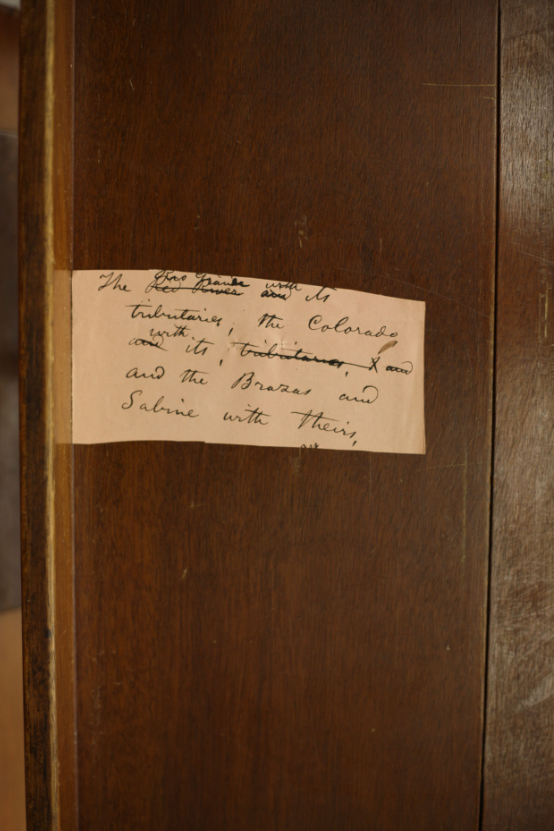 Rio Grande with
The Red River and its
tributaries, the Colorado
with
and its, tributaries, X and
and the Brazas and
Sabine with theirs,